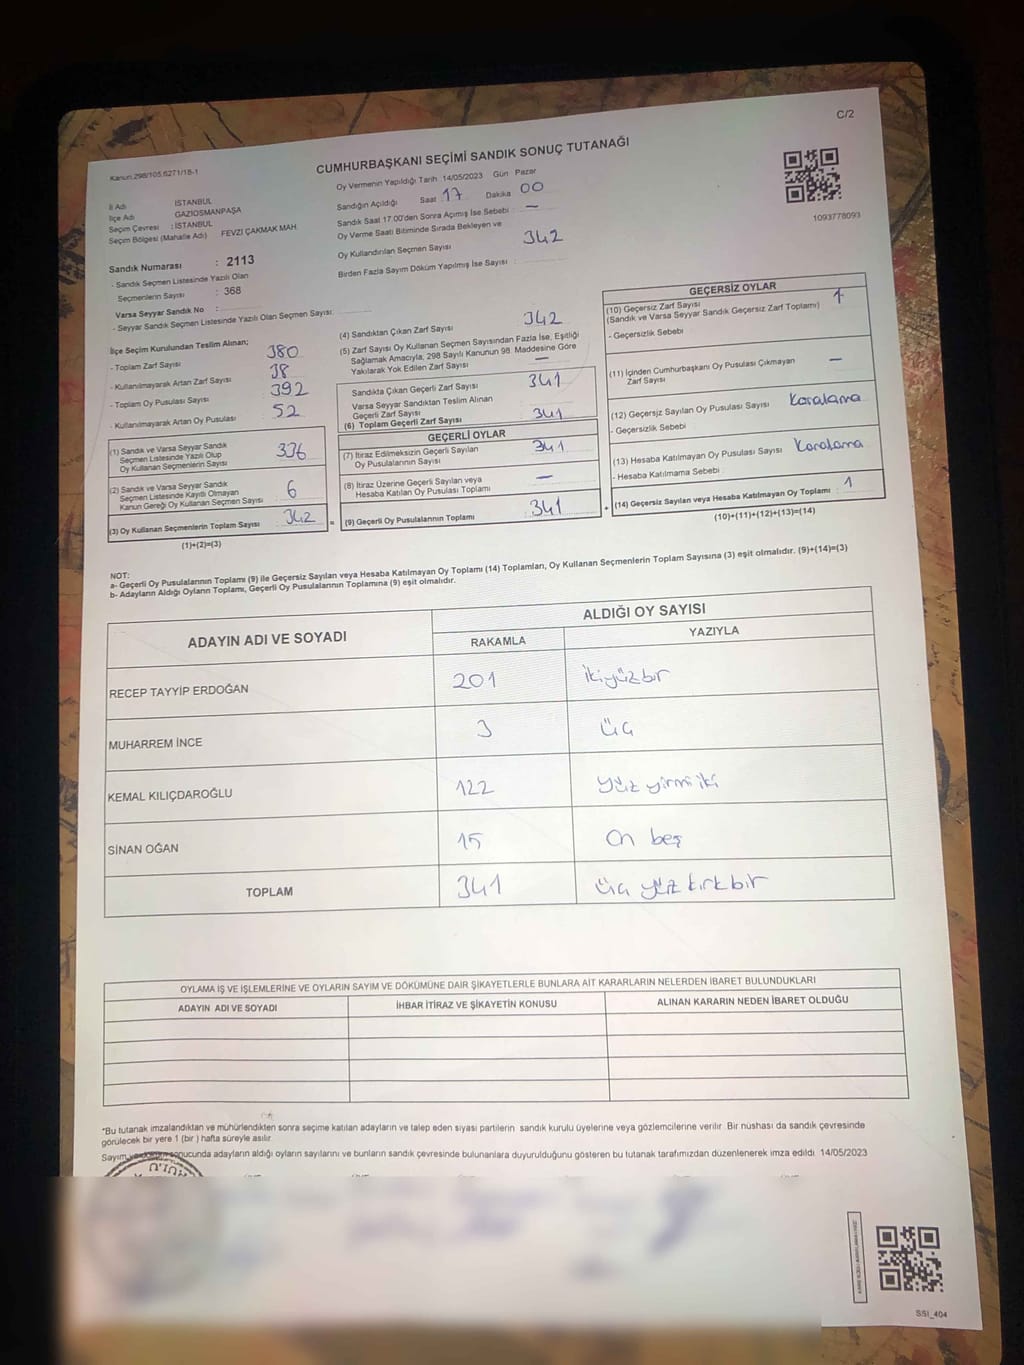 C/2
Kanun 298/105.6271/18-1
CUMHURBAŞKANI SEÇİMİ SANDIK SONUÇ TUTANAĞI
1093778093
İl Adı İSTANBUL
İlçe Adı GAZİOSMANPAŞA
Seçim Çevresi : İSTANBUL
Seçim Bölgesi (Mahalle Adı) FEVZİ ÇAKMAK MAH.
Sandık Numarası : 2113
- Sandık Seçmen Listesinde Yazılı Olan
Seçmenlerin Sayısı : 368
Varsa Seyyar Sandık No :
- Seyyar Sandık Seçmen Listesinde Yazılı Olan Seçmen Sayısı:
Oy Vermenin Yapıldığı Tarih :14/05/2023 Gün Pazar
Sandığın Açıldığı Saat 17 Dakika 00
Sandık Saat 17.00'den Sonra Açımış İse Sebebi : —
Oy Verme Saati Bitiminde Sırada Bekleyen ve
Oy Kullandırılan Seçmen Sayısı 342
Birden Fazla Sayım Döküm Yapılmış İse Sayısı :
İlçe Seçim Kurulundan Teslim Alınan;
- Toplam Zarf Sayısı 380
- Kullanılmayarak Artan Zarf Sayısı 38
- Toplam Oy Pusulası Sayısı 392
- Kullanılmayarak Artan Oy Pusulası 52
(1) Sandık ve Varsa Seyyar Sandık
Seçmen Listesinde Yazılı Olup
Oy Kullanan Seçmenlerin Sayısı 336
(2) Sandık ve Varsa Seyyar Sandık
Seçmen Listesinde Kayıtlı Olmayan
Kanun Gereği Oy Kullanan Seçmen Sayısı 6
(3) Oy Kullanan Seçmenlerin Toplam Sayısı 342
(1)+(2)=(3)
(4) Sandıktan Çıkan Zarf Sayısı 342
(5) Zarf Sayısı Oy Kullanan Seçmen Sayısından Fazla İse, Eşitliği
Sağlamak Amacıyla, 298 Sayılı Kanunun 98. Maddesine Göre
Yakılarak Yok Edilen Zarf Sayısı —
Sandıkta Çıkan Geçerli Zarf Sayısı 341
Varsa Seyyar Sandıktan Teslim Alınan
Geçerli Zarf Sayısı
(6) Toplam Geçerli Zarf Sayısı 341
GEÇERLİ OYLAR
(7) İtiraz Edilmeksizin Geçerli Sayılan
Oy Pusulalarının Sayısı 341
(8) İtiraz Üzerine Geçerli Sayılan veya
Hesaba Katılan Oy Pusulası Toplamı —
= (9) Geçerli Oy Pusulalarının Toplamı 341
GEÇERSİZ OYLAR
(10) Geçersiz Zarf Sayısı
(Sandık ve Varsa Seyyar Sandık Geçersiz Zarf Toplamı) 1
- Geçersizlik Sebebi
(11) İçinden Cumhurbaşkanı Oy Pusulası Çıkmayan
Zarf Sayısı —
(12) Geçersiz Sayılan Oy Pusulası Sayısı Karalama
- Geçersizlik Sebebi
(13) Hesaba Katılmayan Oy Pusulası Sayısı Karalama
- Hesaba Katılmama Sebebi
+ (14) Geçersiz Sayılan veya Hesaba Katılmayan Oy Toplamı 1
(10)+(11)+(12)+(13)=(14)
NOT:
a- Geçerli Oy Pusulalarının Toplamı (9) ile Geçersiz Sayılan veya Hesaba Katılmayan Oy Toplamı (14) Toplamları, Oy Kullanan Seçmenlerin Toplam Sayısına (3) eşit olmalıdır. (9)+(14)=(3)
b- Adayların Aldığı Oyların Toplamı, Geçerli Oy Pusulalarının Toplamına (9) eşit olmalıdır.
ADAYIN ADI VE SOYADI ALDIĞI OY SAYISI
RAKAMLA YAZIYLA
RECEP TAYYİP ERDOĞAN 201 ikiyüzbir
MUHARREM İNCE 3 üç
KEMAL KILIÇDAROĞLU 122 yüz yirmi iki
SİNAN OĞAN 15 On beş
TOPLAM 341 üç yüz kırk bir
OYLAMA İŞ VE İŞLEMLERİNE VE OYLARIN SAYIM VE DÖKÜMÜNE DAİR ŞİKAYETLERLE BUNLARA AİT KARARLARIN NELERDEN İBARET BULUNDUKLARI
ADAYIN ADI VE SOYADI İHBAR İTİRAZ VE ŞİKAYETİN KONUSU ALINAN KARARIN NEDEN İBARET OLDUĞU
*Bu tutanak imzalandıktan ve mühürlendikten sonra seçime katılan adayların ve talep eden siyasi partilerin sandık kurulu üyelerine veya gözlemcilerine verilir. Bir nüshası da sandık çevresinde
görülecek bir yere 1 (bir ) hafta süreyle asılır.
Sayım sonucunda adayların aldığı oyların sayılarını ve bunların sandık çevresinde bulunanlara duyurulduğunu gösteren bu tutanak tarafımızdan düzenlenerek imza edildi. 14/05/2023
SSI_404